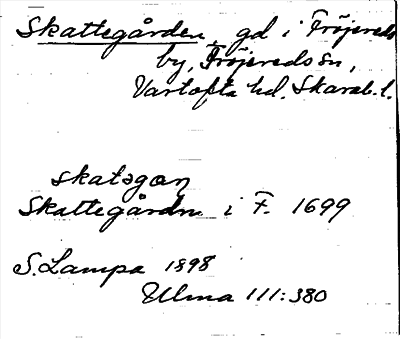 Skattegården, gd i Fröjereds
by, Fröjereds sn,
Vartofta hd. Skarab. l.
skatəgaɳ
Skattegårdn i F. 1699
S. Lampa 1898
Ulma 111:380